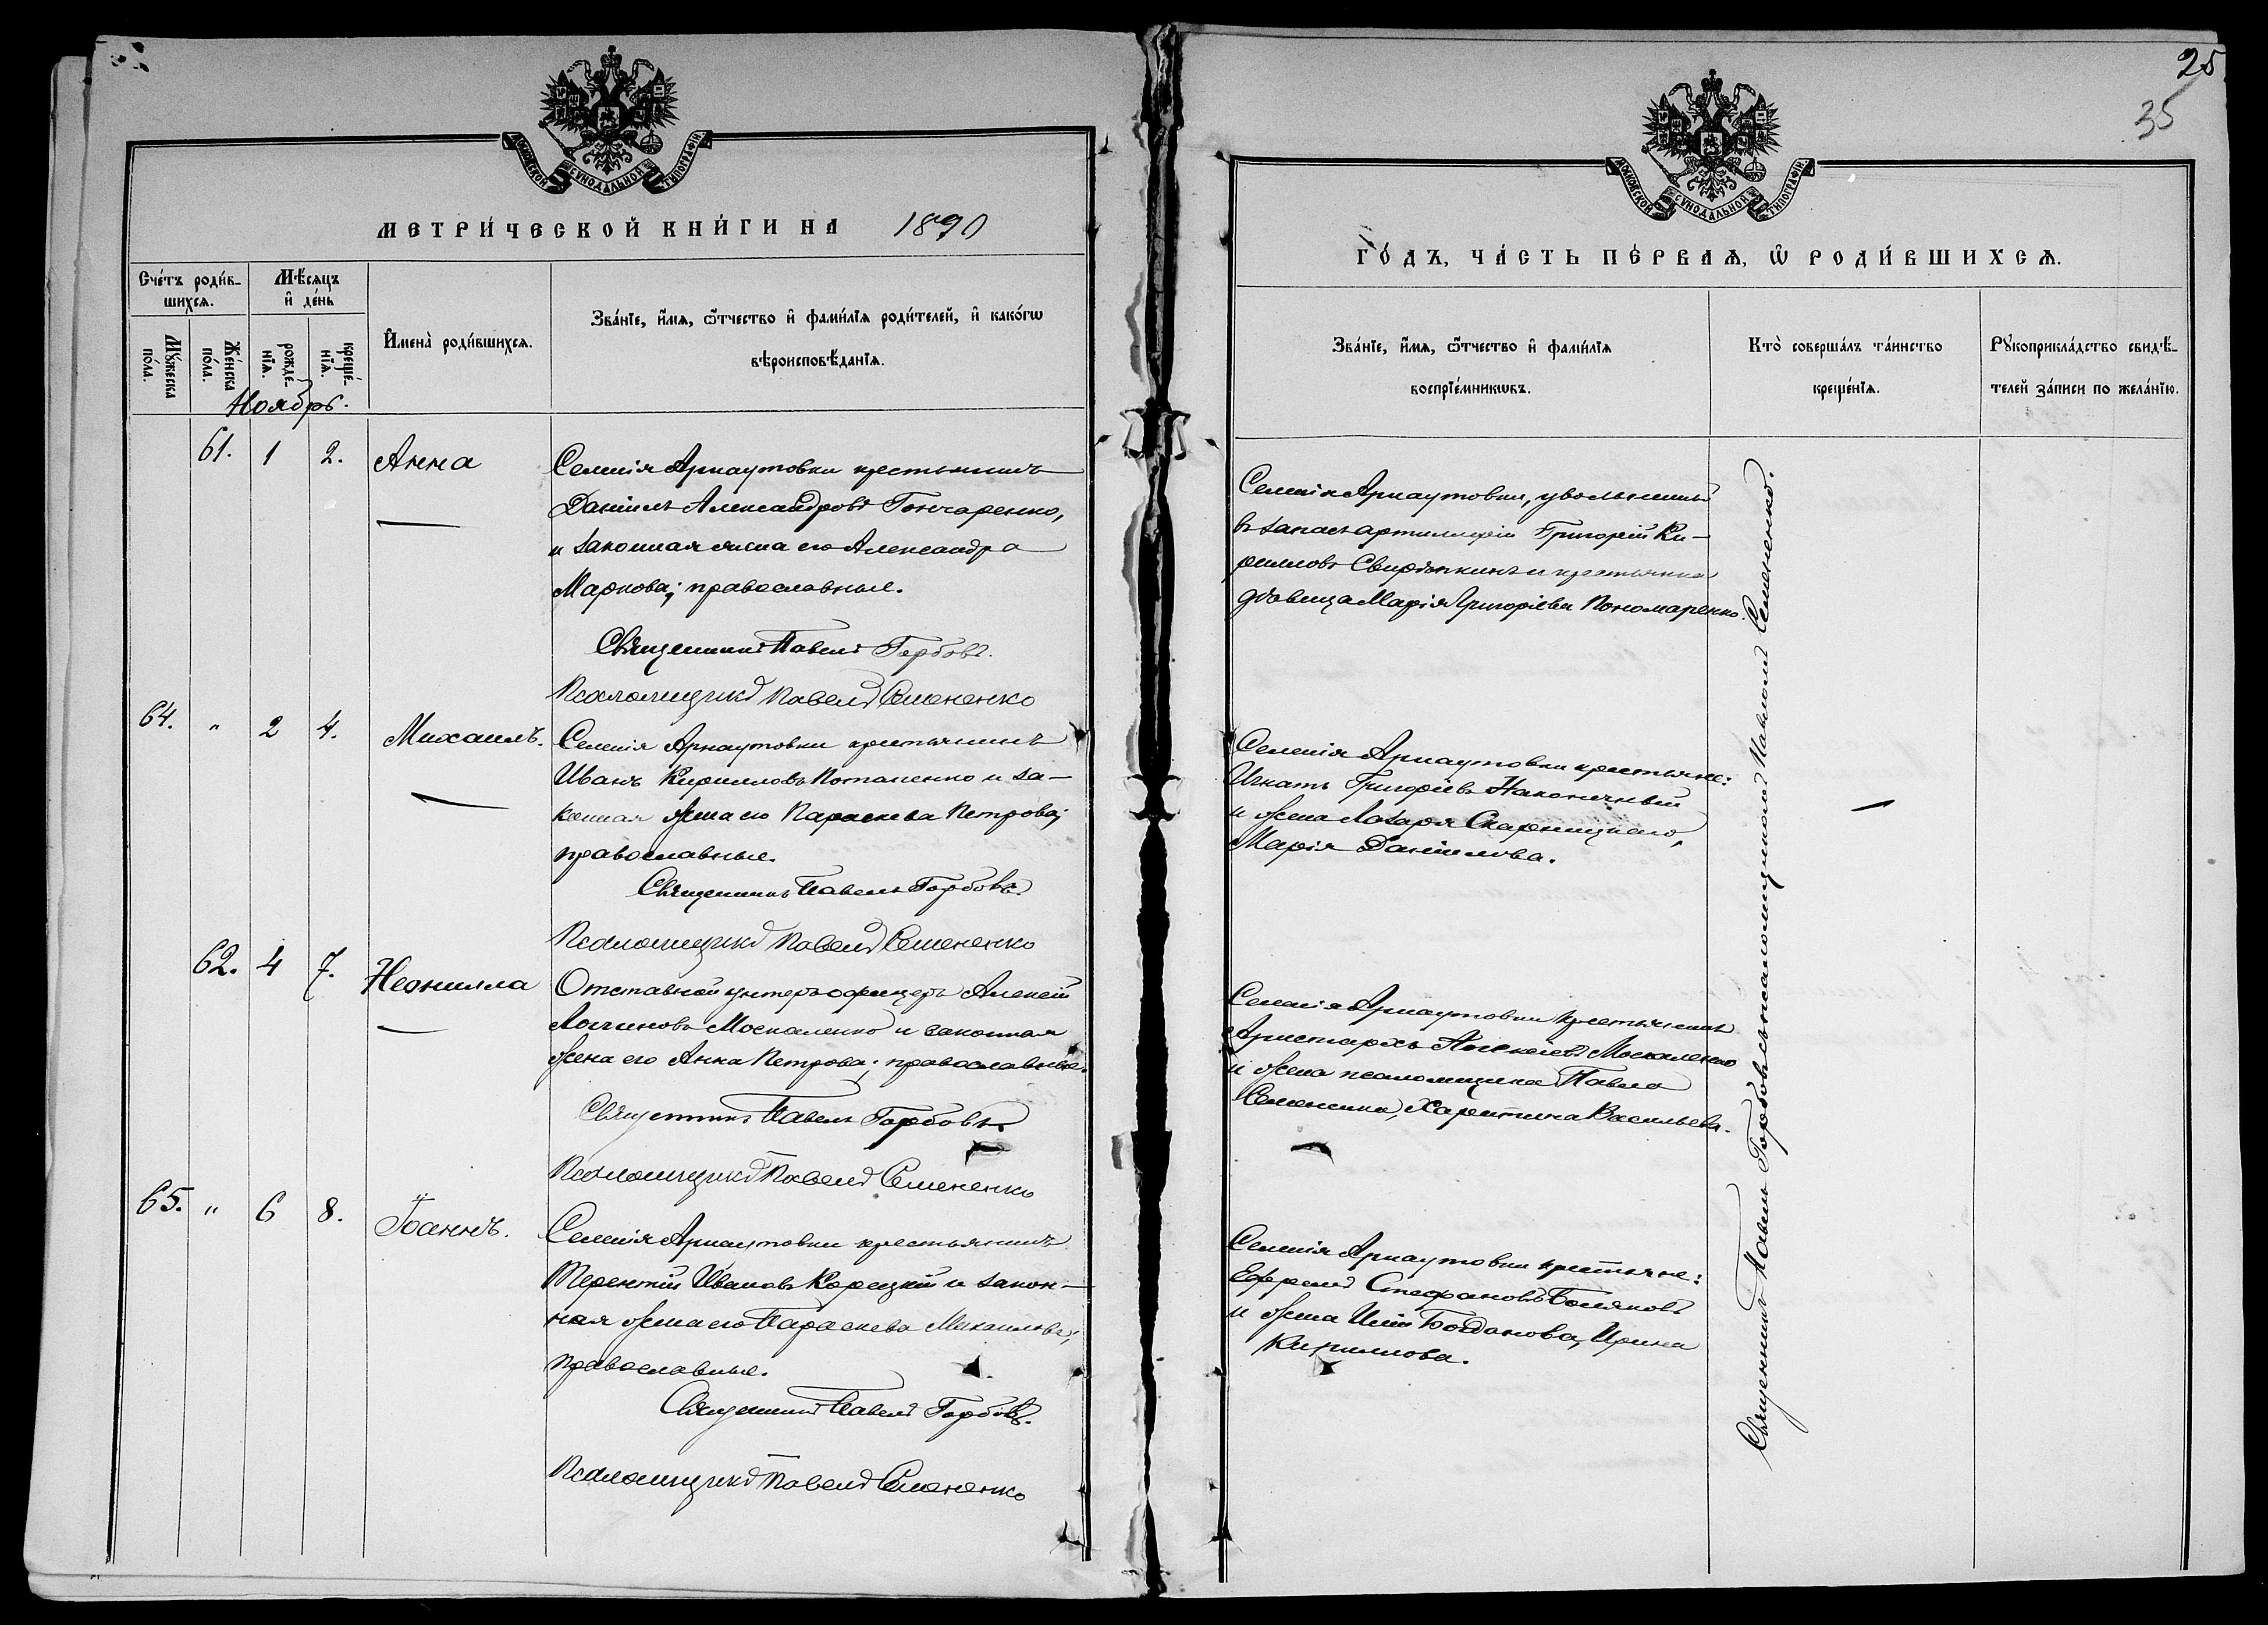 25
35
МОСКОВСКОЙ СѴНОДАЛЬНОЙ ТИПОГРАФІИ
МЕТРИ́ЧЕСКОЙ КНИ́ГИ НА 1890
Сче́тъ роди́в-
шихся.
Мѣ́сяцъ
и҆ де́нь
Мꙋ́жеска
по́ла.
Же́нска
по́ла.
рожде́-
нїя.
креще́-
нїя.
И҆мена̀ роди́вшихся.
Зва́нїе, и҆́мя, ѻ҆́тчество и҆ фами́лїя роди́телей, и҆ како́гѡ
вѣроисповѣ́данїя.
Ноябрь.
61. 1 2. Анна
Селенія Арнаутовки крестьянинъ
Даніилъ Александровъ Гончаренко,
и законная жена его Александра
Маркова; православные.
Священникъ Павелъ Горбовъ.
Псаломщикъ Павелъ Семененко
64. " 2 4. Михаилъ.
Селенія Арнаутовки крестьянинъ
Иванъ Кирилловъ Потапенко и за-
конная жена его Параскева Петрова;
православные.
Священникъ Павелъ Горбовъ.
Псаломщикъ Павелъ Семененко
62. 4 7. Неонилла
Отставной унтеръ-офицеръ Алексѣй
Логиновъ Москаленко и законная
жена его Анна Петрова; православные.
Священникъ Павелъ Горбовъ.
Псаломщикъ Павелъ Семененко
65. " 6 8. Іоаннъ.
Селенія Арнаутовки крестьянинъ
Терентій Ивановъ Корецкій и закон-
ная жена его Параскева Михаилова;
православные.
Священникъ Павелъ Горбовъ.
Псаломщикъ Павелъ Семененко
МОСКОВСКОЙ СѴНОДАЛЬНОЙ ТИПОГРАФІИ
ГО́ДЪ, ЧА́СТЬ ПЕ́РВАЯ, Ѡ҆ РОДИ́ВШИХСЯ.
Зва́нїе, и҆́мя, ѻ҆́тчество и҆ фами́лїя
воспрїе́мникѡвъ.
Кто̀ соверша́лъ та́инство
креще́нїя.
Рꙋкоприкла́дство свидѣ́-
телей за́писи по жела́нїю.
Селенія Арнаутовки, уволенный
въ запасъ артиллеріи Григорій Ки-
рилловъ и крестьянка
вдовица Марія Григоріева Пономаренко.
Селенія Арнаутовки крестьяне:
Игнатъ Григоріевъ Наконечный
и жена Лазаря Скарницкаго,
Марія Даніилова.
Селенія Арнаутовки крестьянинъ
Аристархъ Алексѣевъ Москаленко
и жена псаломщика Павла
Семененка, Харитина Васильева.
Селенія Арнаутовки крестьяне:
Ефремъ Стефановъ
и жена Иліи Богданова, Ирина
Кириллова.
Священникъ Павелъ Горбовъ съ псаломщикомъ Павломъ Семененко.